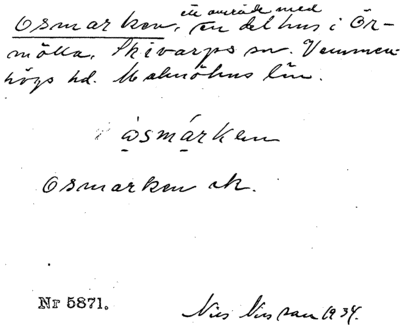 ett område med
Osmarken, en del hus i Ör-
mölla, Skivarps sn. Vemmen-
högs hd. Malmöhus län.
ọsmạ́rken
Osmarken ek.
Nr 5871.
Nils Nilsson 1934.